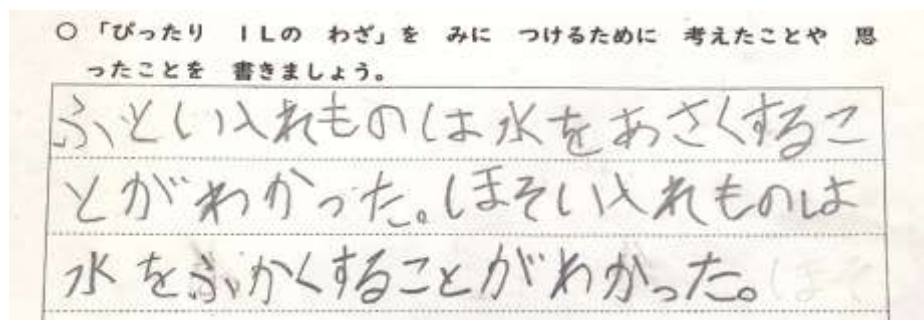 ○「ぴったり　1Lの　わざ」を　みに　つけるために　考えたことや　思
ったことを　書きましょう。
ふとい入れものは水をあさくするこ
とがわかった。ほそい入れものは
水をふかくすることがわかった。